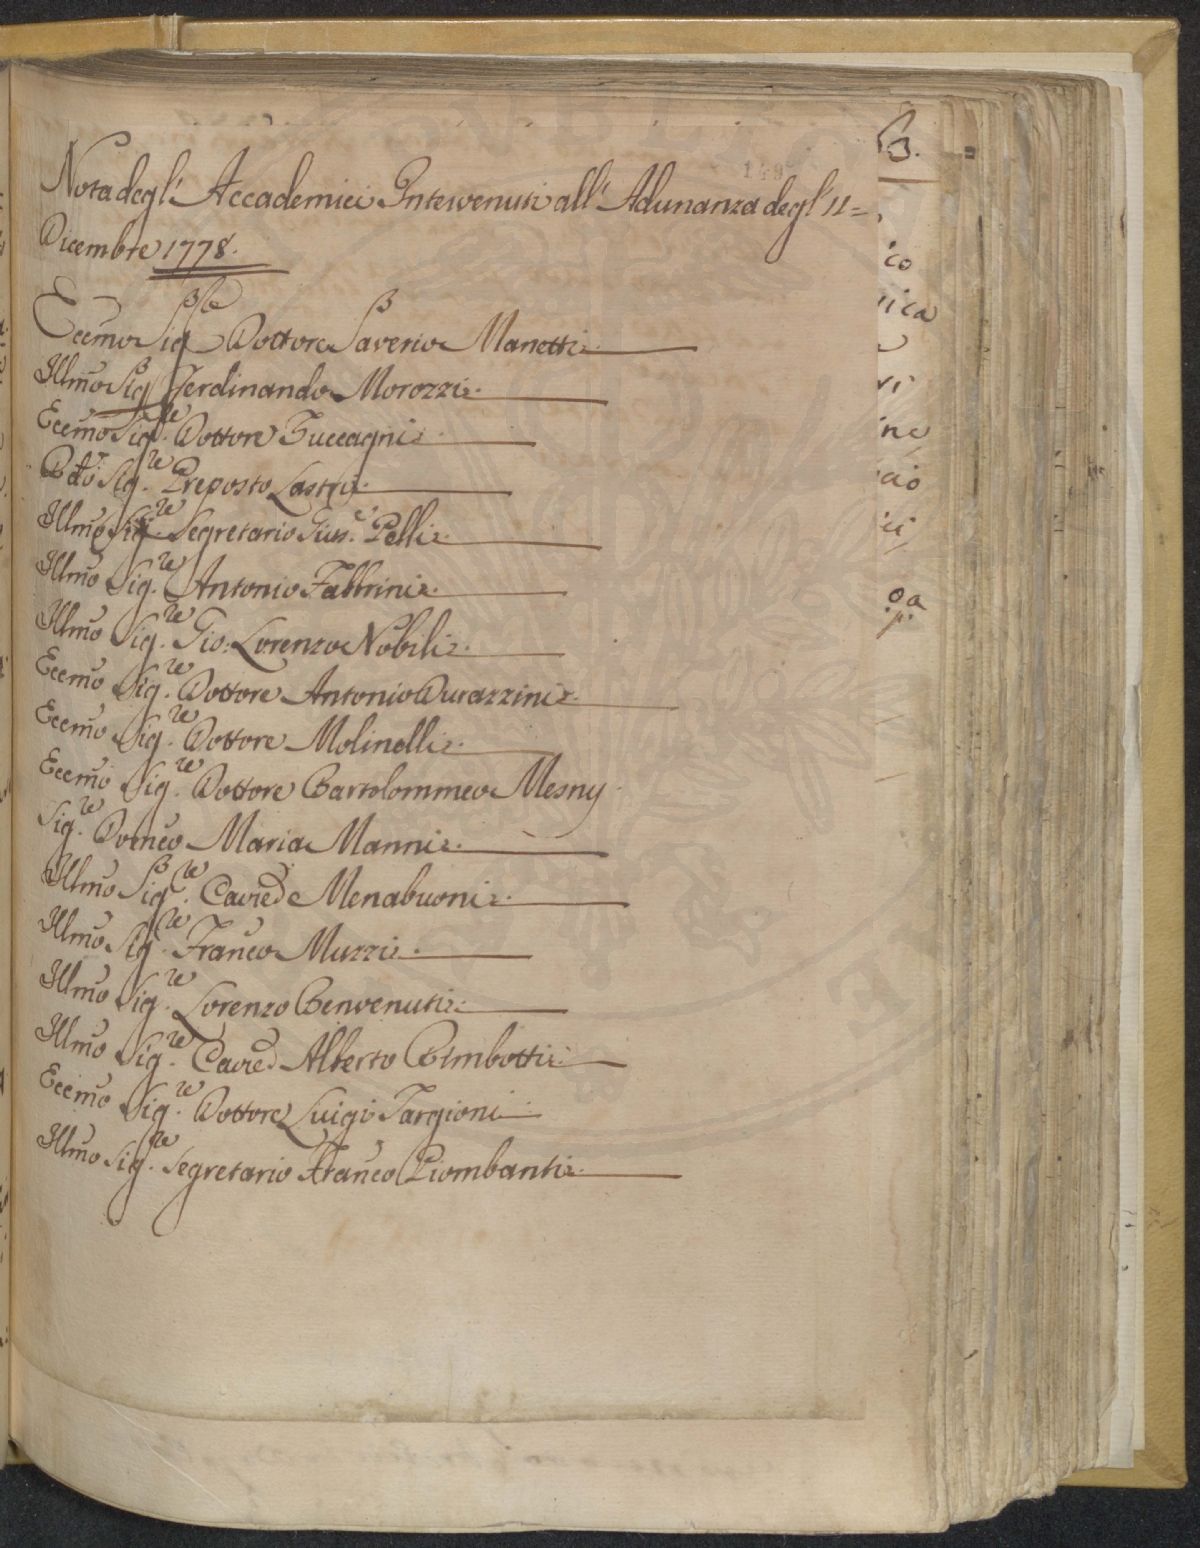 Nota degl' Accademici Intervenuti all' Adunanza degl' 11=
Dicembre 1778.
Eccmo Sigre Dottore Saverio Manetti
Illmo Sig Ferdinando Morozzi
Eccmo Sigre Dottore Zuccagni
Sigre Preposto Lastri
Illmo Sigre Segretario Gius.e Pelli
Illmo Sigre Antonio Fabbrini
Illmo Sigre Gio: Lorenzo Nobili
Eccmo Sigre Dottore Antonio Durazzini
Eccmo Sigre Dottore Molinelli
Eccmo Sigre Dottore Bartolommeo Mesny
Sigre Domco Maria Manni
Illmo Sigre Cavre de Menabuoni
Illmo Sigre Franco Muzzi
Illmo Sigre Lorenzo Benvenuti
Illmo Sigre Cavre Alberto Rimbotti
Eccmo Sigre Dottore Luigi Targioni
Illmo Sigre Segretario Franco Piombanti